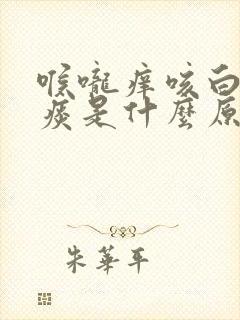 喉嚨痒咳白
痰是什麼原
朱華平